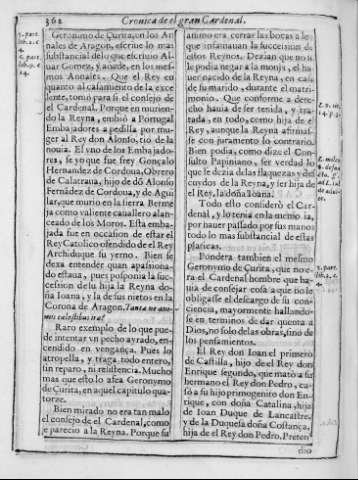 362 Cronica de el gran Cardenal.
Geronimo de Çurita, en los An
nales de Aragon, escriue lo mas
substancial de lo que escriuio Al
uar Gomez, y añade, en los mes-
mos Annales. Que el Rey en
quanto al casamiento de la exce
lente, tomò para si el consejo de
el Cardenal. Porque en murien-
do la Reyna, embiò a Portugal
Embajadores a pedilla por mu-
ger al Rey don Alonso, tio de la
nouia. El vno de los Embajado-
res, se yo que fue frey Gonçalo
Hernandez de Cordoua, Obrero
de Calatraua, hijo de dõ Alonso
Fernãdez de Cordoua, y de Agui
lar, que murio en la sierra Berme
ja como valiente cauallero alan-
ceado de los Moros. Esta emba-
jada fue en ocasion de estar el
Rey Catolico ofendido de el Rey
Archiduque su yerno. Bien se
dexa entender quan apasiona-
do estaua, pues posponia la suc-
cession de su hija la Reyna do-
ña Ioana, y la de sus nietos en la
Corona de Aragon. Tantæ ne ani-
mis cælestibus iræ!
Raro exemplo de lo que pue-
de intentar vn pecho ayrado, en-
cendido en vengança. Pues lo
atropella, y traga todo entero,
sin reparo, ni resistencia. Mucho
mas que esto lo afea Geronymo
de Çurita, en aquel capitulo qua-
torze.
Bien mirado no era tan malo
el consejo de el Cardenal, como
le parecio a la Reyna. Porque su
animo era cerrar las bocas a los
que infamauan la succession de
estos Reynos. Dezian que no se
le podia negar a la monja, el ha-
uer nacido de la Reyna, en casa
de su marido, durante el matri-
monio. Que conforme a dere-
cho hauia de ser tenida, y tra-
tada, en todo, como hija de el
Rey, aunque la Reyna afirmas-
se con juramento lo contrario.
Bien podia, como dize el Con-
sulto Papiniano, ser verdad lo
que se dezia de las flaquezas y des
cuydos de la Reyna, y ser hija de
el Rey, la dicha Ioana.
Todo esto considerò el Car-
denal, y lo tenia en la memoria,
por hauer passado por sus manos
todo lo mas substancial de estas
platicas.
Pondera tambien el mesmo
Geronymo de Çurita, que no e-
ra el Cardenal hombre que ha-
uia de consejar cosa a que no le
obligasse el descargo de su con-
ciencia, mayormente hallando-
se en terminos de dar quenta a
Dios, no solo de las obras, sino de
los pensamientos.
El Rey don Ioan el primero
de Castilla, hijo de el Rey don
Enrique segundo, que matò a su
hermano el Rey don Pedro, ca-
sò a su hijo primogenito don En-
rique, con doña Catalina, hija
de Ioan Duque de Lancastre,
y de la Duquesa doña Costança,
hija de el Rey don Pedro. Preten